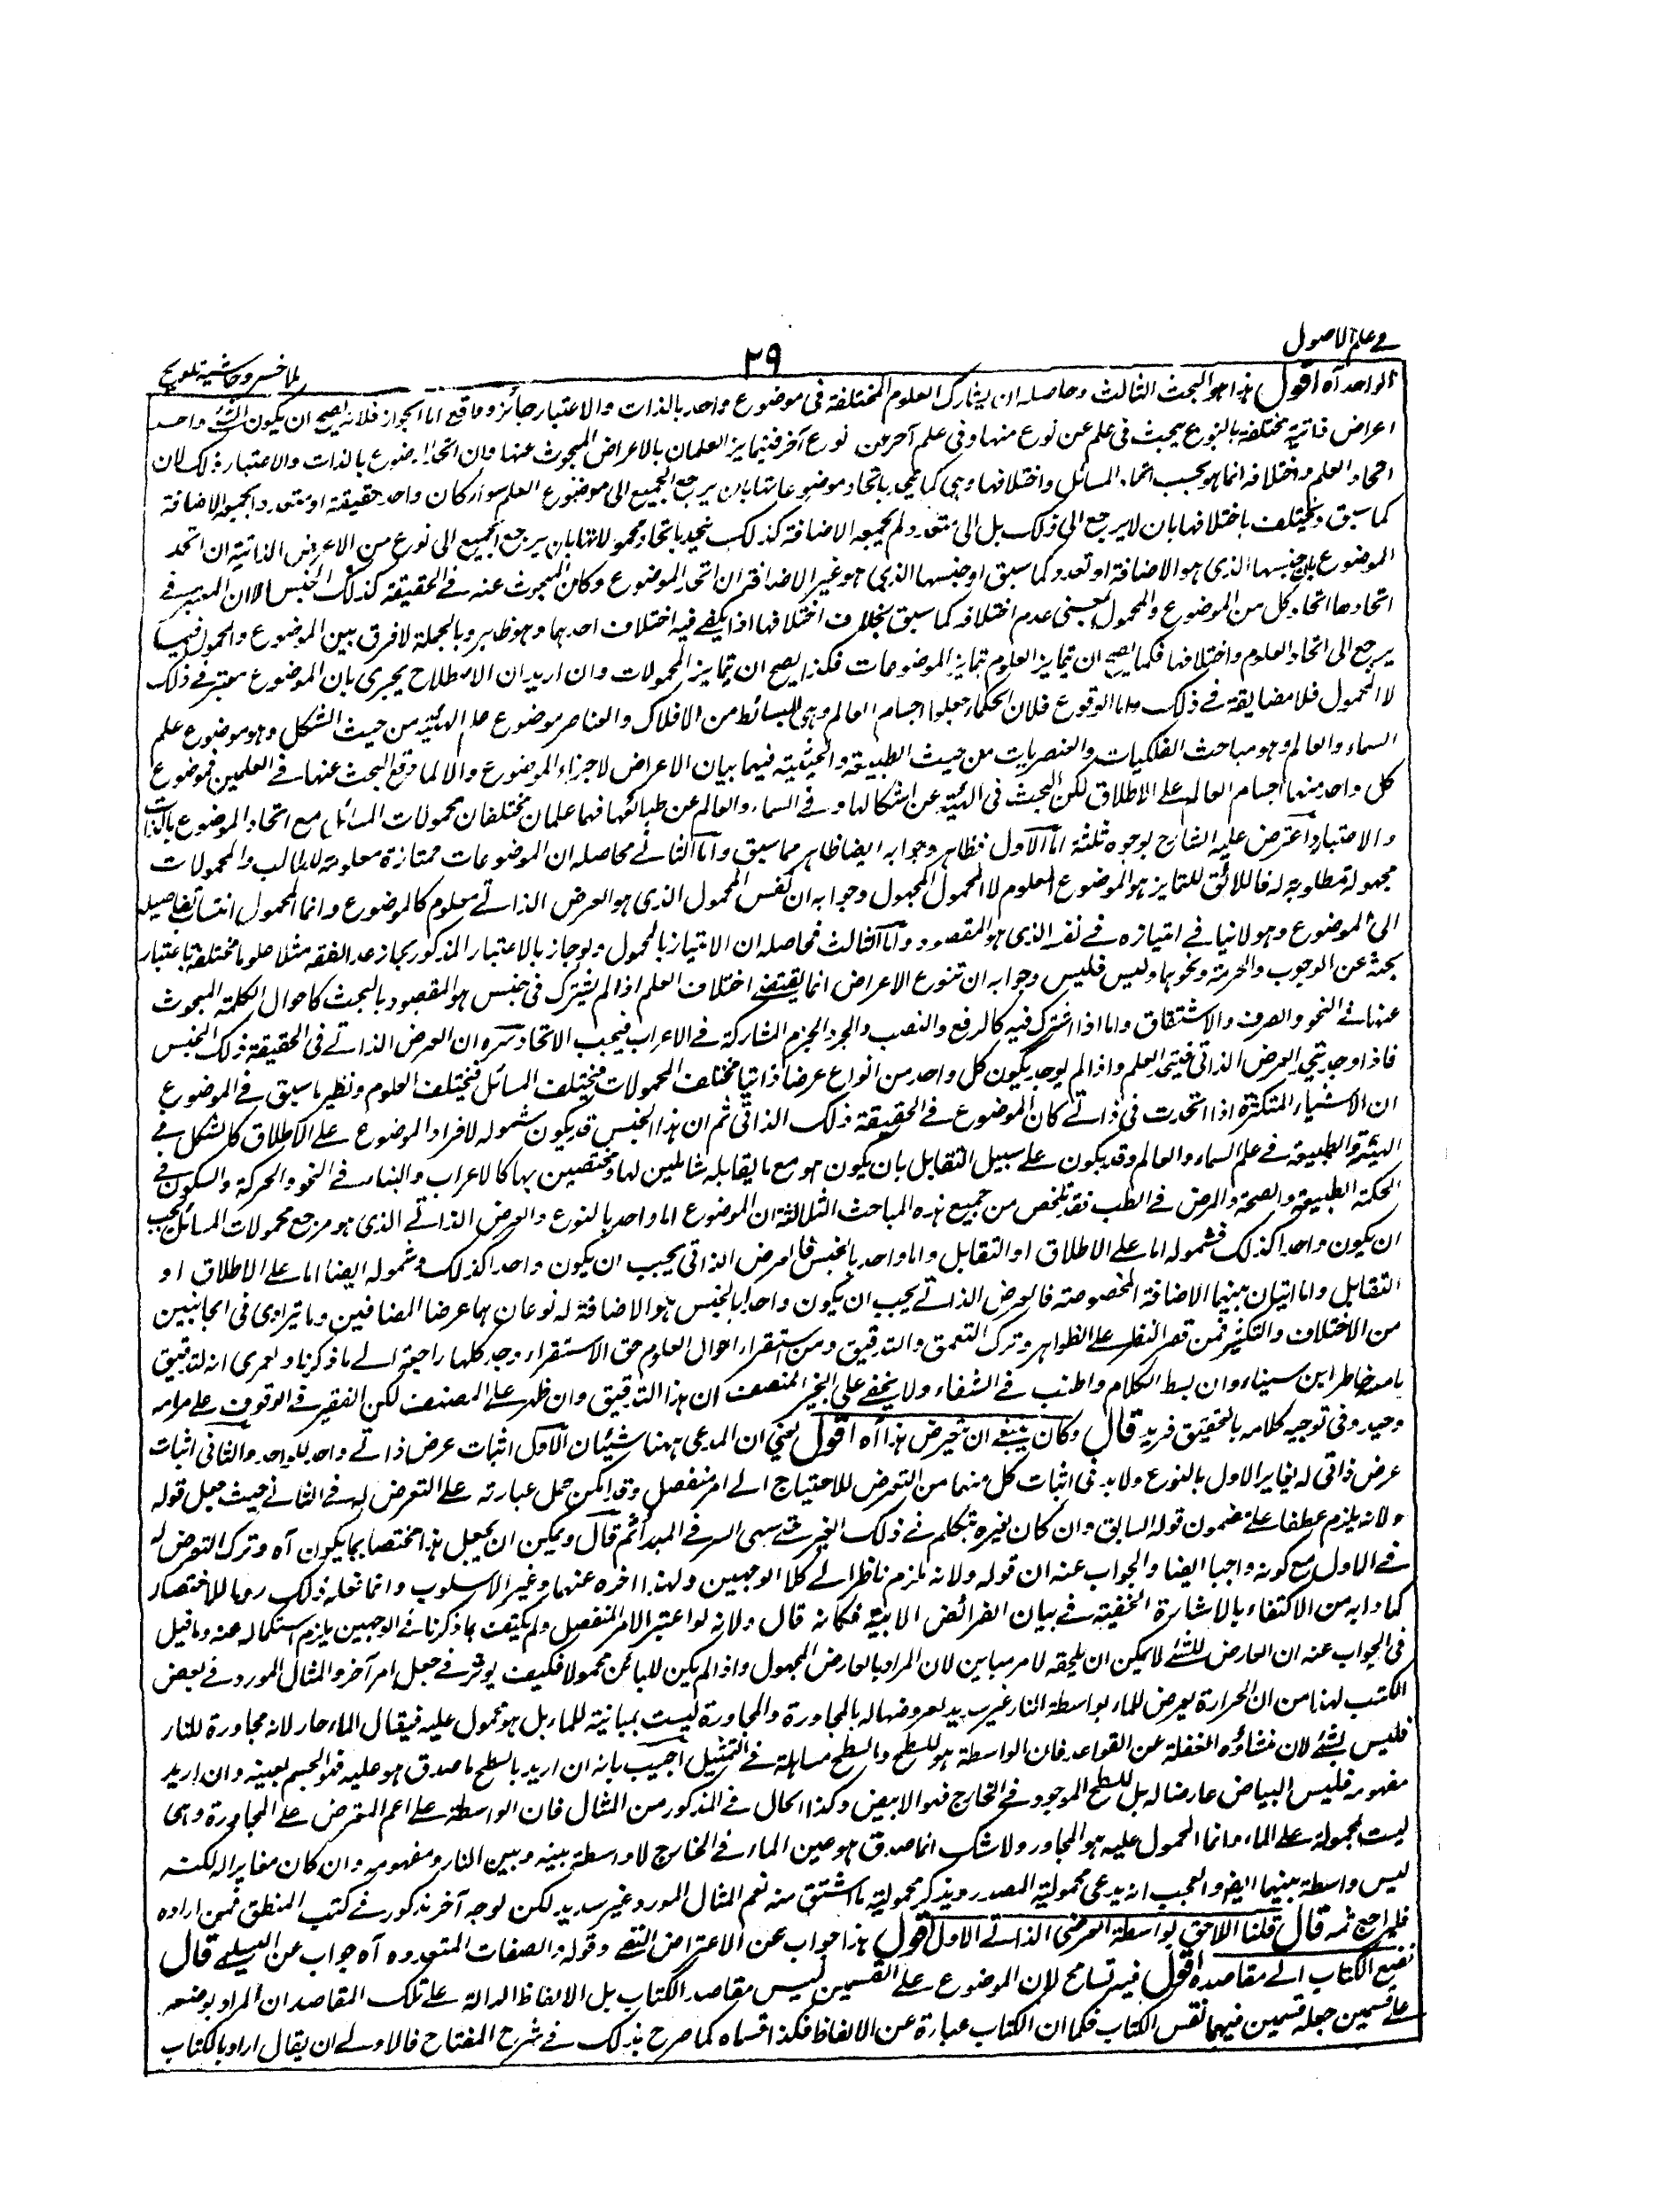 في علم الاصول
٢٩
لملا خسرو حاشية تلويح
الواحد آه اقول هذا هو البحث الثالث وحاصله ان يشارك العلوم المختلفة فى موضوع واحد بالذات والاعتبار جائز وواقع اما الجواز فلانه يصح ان يكون لشئ واحد
اعراض ذاتية مختلفة بالنوع يبحث فى علم عن نوع منها وفى علم آخر عن نوع آخر فيتمايز العلمان بالاعراض المبحوث عنها وان اتحد الموضوع بالذات والاعتبار وذلك لان
اتحاد العلم واختلافه انما هو بحسب اتحاد المسائل واختلافها وهى كما تتحد باتحاد موضوعاتها بان يرجع الجميع الى موضوع العلم سواء كان واحد حقيقة او متعدد يجمعه الاضافة
كما سبق وتختلف باختلافها بان لا يرجع الى ذلك بل الى متعدد ولم يجمعه الاضافة كذلك تتحد باتحاد محمولاتها بان يرجع الجميع الى نوع من الاعراض الذاتية ان اتحد
الموضوع بل جنسها الذى هو الاضافة او تعدد كما سبق او جنسها الذى هو غير الاضافة ان اتحد الموضوع وكان المبحوث عنه فى الحقيقة كذلك الجنس الا ان المعتبر فى
اتحادها اتحاد كل من الموضوع والمحمول بمعنى عدم اختلافه كما سبق بخلاف اختلافها اذا يكفى فيه اختلاف احدهما وهو ظاهر وبالجملة لا فرق بين الموضوع والمحمول فيما
يرجع الى اتحاد العلوم واختلافها فكما يصح ان تمايز العلوم بتمايز الموضوعات فكذا يصح ان يتمايز المحمولات وان اريد ان الاصطلاح يجرى بان الموضوع معتبر فى ذلك
لا المحمول فلا مضايقة فى ذلك واما الوقوع فلان الحكماء جعلوا اجسام العالم وهى البسائط من الافلاك والعناصر موضوع علم الهيئة من حيث الشكل وهو موضوع علم
السماء والعالم وهو مباحث الفلكيات والعنصريات من حيث الطبيعة والحيثية فيهما بيان الاعراض لا جزء الموضوع والا لما وقع البحث عنها فى العلمين فموضوع
كل واحد منهما اجسام العالم على الاطلاق لكن البحث فى الهيئة عن اشكالها وفى السماء والعالم عن طبائعها فهما علمان مختلفان محمولات المسائل مع اتحاد الموضوع بالذات
والاعتبار واعترض عليه الشارح بوجوه ثلثة اما الاول فظاهر وجوابه ايضا ظاهر مما سبق واما الثانى فحاصله ان الموضوعات ممتازة معلومة للطالب والمحمولات
مجهولة مطلوبة له فاللائق للتمايز هو الموضوع المعلوم لا المحمول المجهول وجوابه ان نفس المحمول الذى هو العرض الذاتى معلوم كالموضوع وانما المجهول انتساب تفاصيله
الى الموضوع وهو لا ينافى امتيازه فى نفسه الذى هو المقصود واما الثالث فحاصله ان الامتياز بالمحمول ولو جاز بالاعتبار المذكور لجاز عد الفقه مثلا علوما مختلفة باعتبار
بحثه عن الوجوب والحرمة ونحوها وليس فليس وجوابه ان تنوع الاعراض انما يقتضى اختلاف العلم اذا لم يشترك فى جنس هو المقصود بالبحث كاحوال الكلمة المبحوث
عنها فى النحو والصرف والاشتقاق واما اذا اشترك فيه كالرفع والنصب والجر والجزم المشاركة فى الاعراب فيجب الاتحاد سره ان العرض الذاتى فى الحقيقة ذلك الجنس
فاذا وجد يتحد العرض الذاتى فيتحد العلم واذا لم يوجد يكون كل واحد من انواع عرضا ذاتيا مختلف المحمولات فيختلف المسائل فيختلف العلوم ونظير ما سبق فى الموضوع
ان الاشياء المتكثرة اذا اتحدت فى ذاتى كان الموضوع فى الحقيقة ذلك الذاتى ثم ان هذا الجنس قد يكون شموله لافراد الموضوع على الاطلاق كالشكل فى
الهيئة والطبيعة فى علم السماء والعالم وقد يكون على سبيل التقابل بان يكون هو مع ما يقابله شاملين لها ومختصين بها كالاعراب والبناء فى النحو والحركة والسكون فى
الحكمة الطبيعية والصحة والمرض فى الطب فقد تلخص من جميع هذه المباحث الثلاثة ان الموضوع اما واحد بالنوع والعرض الذاتى الذى هو مرجع محمولات المسائل يجب
ان يكون واحدا كذلك فشموله اما على الاطلاق او التقابل واما واحد بالجنس فالعرض الذاتى يجب ان يكون واحدا كذلك وشموله ايضا اما على الاطلاق او
التقابل واما اثنان بينهما الاضافة المخصوصة فالعرض الذاتى يجب ان يكون واحدا بالجنس هو الاضافة له نوعان هما عرضا المضافين وما يترادى فى الجانبين
من الاختلاف والتكثر فمن قصر النظر على الظواهر وترك التعمق والتدقيق ومن استقرا احوال العلوم حق الاستقراء وجد كلها راجعة الى ما ذكرنا ولعمرى انه لتدقيق
خاطر ابن سيناء وان بسط الكلام واطنب فى الشفاء ولا يخفى على الخبير المنصف ان هذا التدقيق وان ظهر على المصنف لكن الفقير فى الوقوف على مرامه
وحيد وفى توجيه كلامه بالتحقيق فريد قال وكان ينبغى ان تعرض هذا آه اقول يعنى ان المدعى ههنا شيئان الاول اثبات عرض ذاتى واحد للواحد والثانى اثبات
عرض ذاتى له يغاير الاول بالنوع ولا بد فى اثبات كل منهما من التعرض للاحتياج الى امر منفصل وقد امكن حمل عبارته على التعرض له فى الثانى حيث جعل قوله
ولانه يلزم عطفا على مضمون قوله السابق وان كان لغيره نتكلم فى ذلك الغير حتى ينتهى الى المبدأ ثم قال ويمكن ان يجعل هذا مختصا بما يكون آه وترك التعرض له
فى الاول مع كونه واجبا ايضا والجواب عنه ان قوله ولانه يلزم ناظر الى كلا الوجهين ولهذا اخره عنها وغير الاسلوب وانما فعله ذلك روما للاختصار
كما دابه من الاكتفاء بالاشارة الخفية فى بيان الفرائض الابية فكانه قال ولانه لو اعتبر الامر المنفصل ولم يكتف بما ذكرنا فى الوجهين يلزم استكماله عنه وما قيل
فى الجواب عنه ان العارض للشئ لا يمكن ان يلحقه لامر مباين لان المراد بالعارض المحمول واذا لم يكن للمباين محمولا فكيف يوثر فى جعل امر آخر والمثال المورد فى بعض
الكتب لهذا من ان الحرارة يعرض للماء بواسطة النار غير سديد لعروضها له بالمجاورة والمجاورة ليست بمباينة للماء بل هو محمول عليه فيقال الماء حار لانه مجاورة للنار
فليس بشئ لان منشاؤه الغفلة عن القواعد فان الواسطة هو للسطح والسطح مساهلة فى التمثيل اجيب بانه ان اريد بالسطح ما صدق هو عليه فهو الجسم بعينه وان اريد
مفهومه فليس البياض عارضا له بل للسطح الموجود فى الخارج فهو الابيض وكذا الحال فى المذكور من المثال فان الواسطة على اعم المفرض على المجاورة وهى
ليست محمولة على الماء وانما المحمول عليه هو المجاور ولا شك انما صدق هو عين الماء فى الخارج لا واسطة بينه وبين النار ومفهومه وان كان مغايرا له لكنه
ليس واسطة بينهما ايضا والعجب انه يدعى محمولية المصدر ويذكر محمولية ما اشتق منه نعم المثال المورد غير سديد لكن لوجه آخر مذكور فى كتب المنطق فمن اراده
فليراجع ثمه قال قلنا اللاحق بواسطة العرض الذاتى الاول اقول هذا جواب عن الاعتراض النقضى وقوله والصفات المتعددة آه جواب عن قال
فنضع الكتاب الى مقاصده اقول فيه تسامح لان الموضوع على القسمين ليس مقاصد الكتاب بل الالفاظ الدالة على تلك المقاصد ان المراد بوضعه
على قسمين جعله قسمين فيهما نفس الكتاب فكما ان الكتاب عبارة عن الالفاظ فكذا اقسامه كما صرح بذلك فى شرح المفتاح فالاولى ان يقال اراد بالكتاب